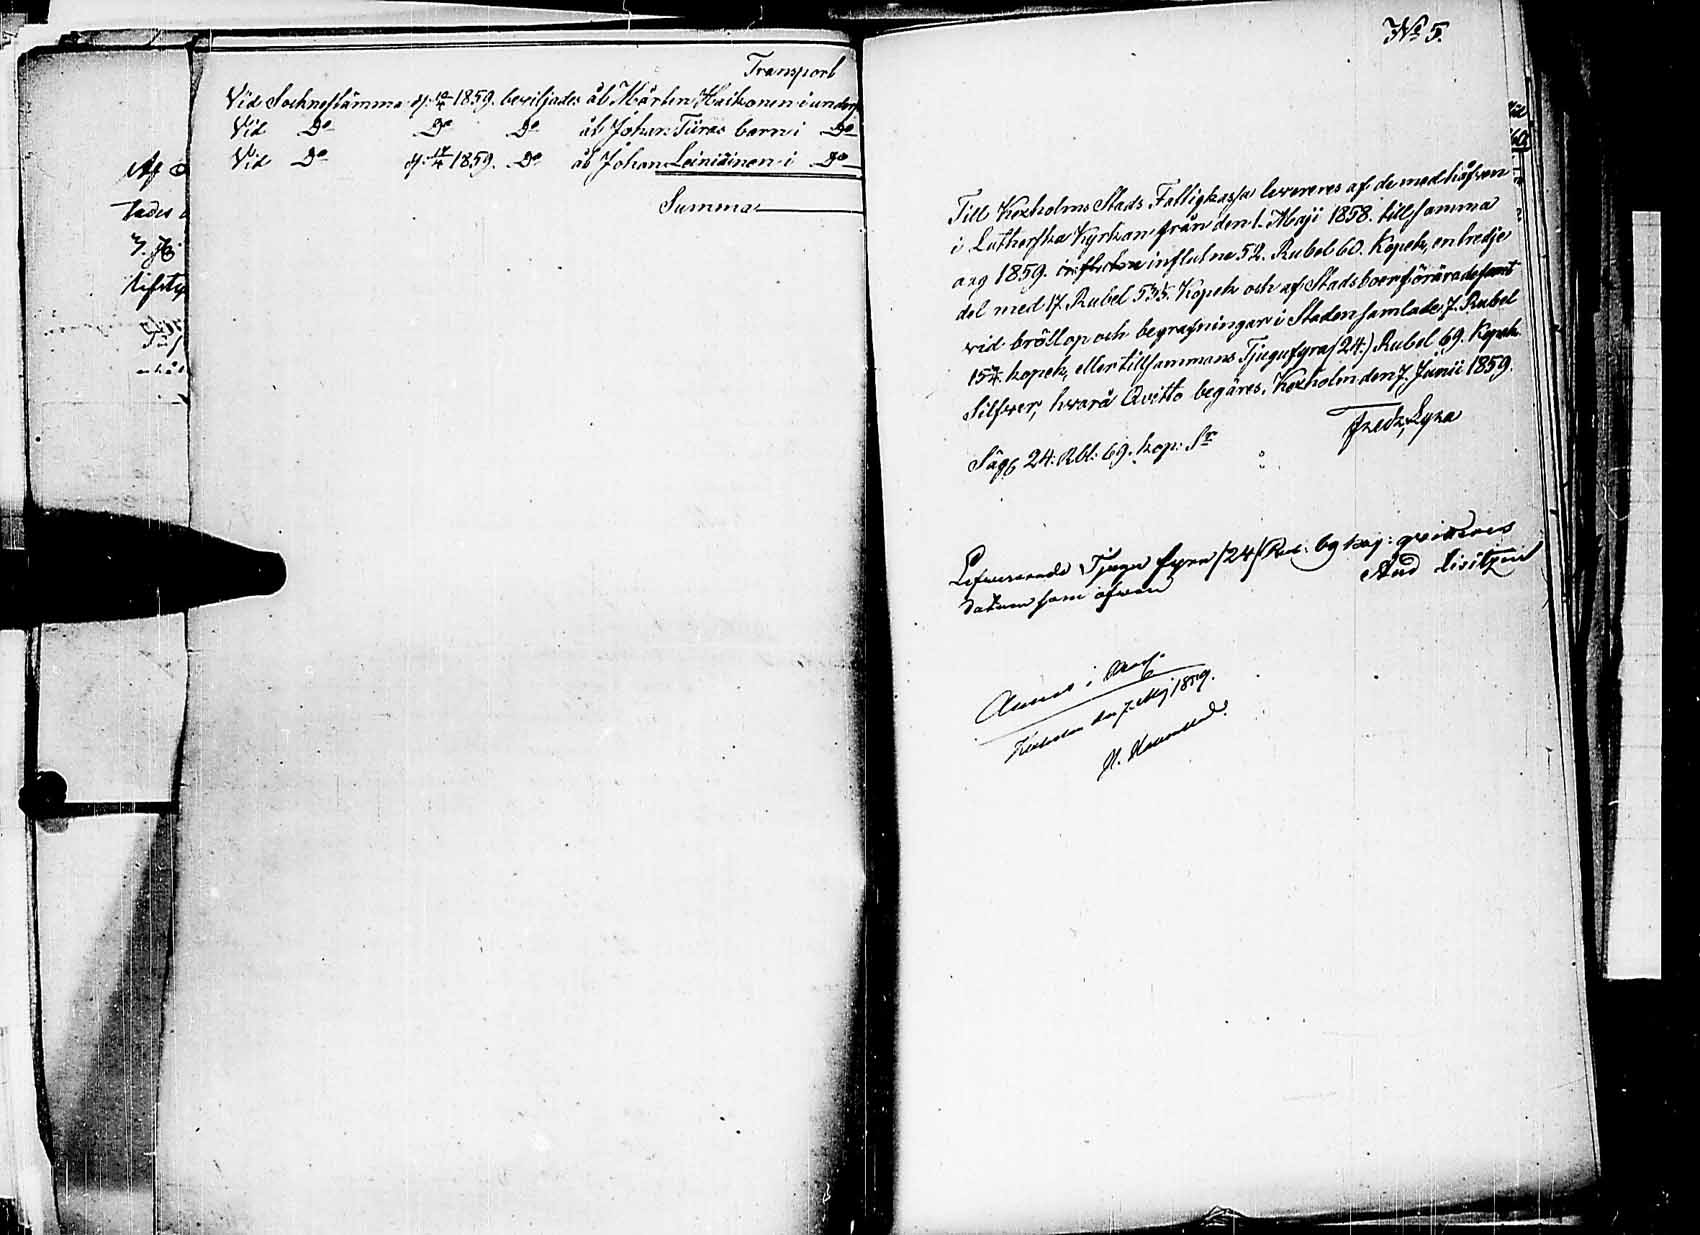 Transport
Vid Socknestämma d. 10/4 1859. beviljades åt Mårten Haikonen i underst
Vid Do Do Do åt Johan Türas barn i Do
Vid Do d. 17/4 1859. Do åt Johan Leinikinen i Do
Summa
Af
tades
No 5.
Till Kexholms Stads Fattigkassa levereres af de med håfven
i Lutherska Kyrkan från den 1. Maji 1858. till samma
dag 1859. influtne influtne 52. Rubel 60. Kopek, en tredje
del med 17. Rubel 53⅓. Kopek och af Stadsboer förärade samt
vid bröllop och begrafningar i Staden samlade 7. Rubel
15 kopek, eller tillsammans Tjugufyra (24.) Rubel 69. Kopek
Silfver, hvarå Qvitto begäres. Kexholm den 7. Junii 1859.
Fredr. Lyra
Säg 24: Rbl: 69. kop: Sr
Lefvererade Tjugu fyra /24/ Rub: 69 kop: qvitteras
Datum som ofvan
And Lisitzin
den 7. Maj 1859.